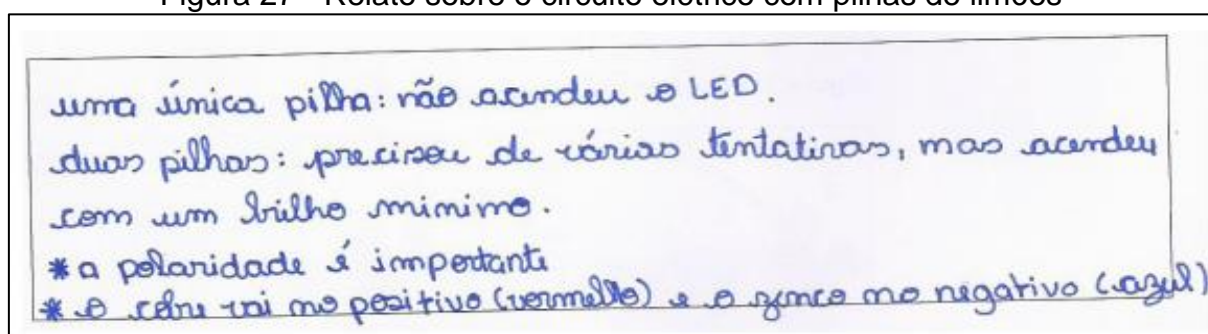 Figura 27 - Relato sobre o circuito elétrico com pilhas de limões
uma única pilha: não acendeu o LED.
duas pilhas: precisou de várias tentativas, mas acendeu
com um brilho mínimo.
* a polaridade é importante
* o cobre vai no positivo (vermelho) e o zinco no negativo (azul)